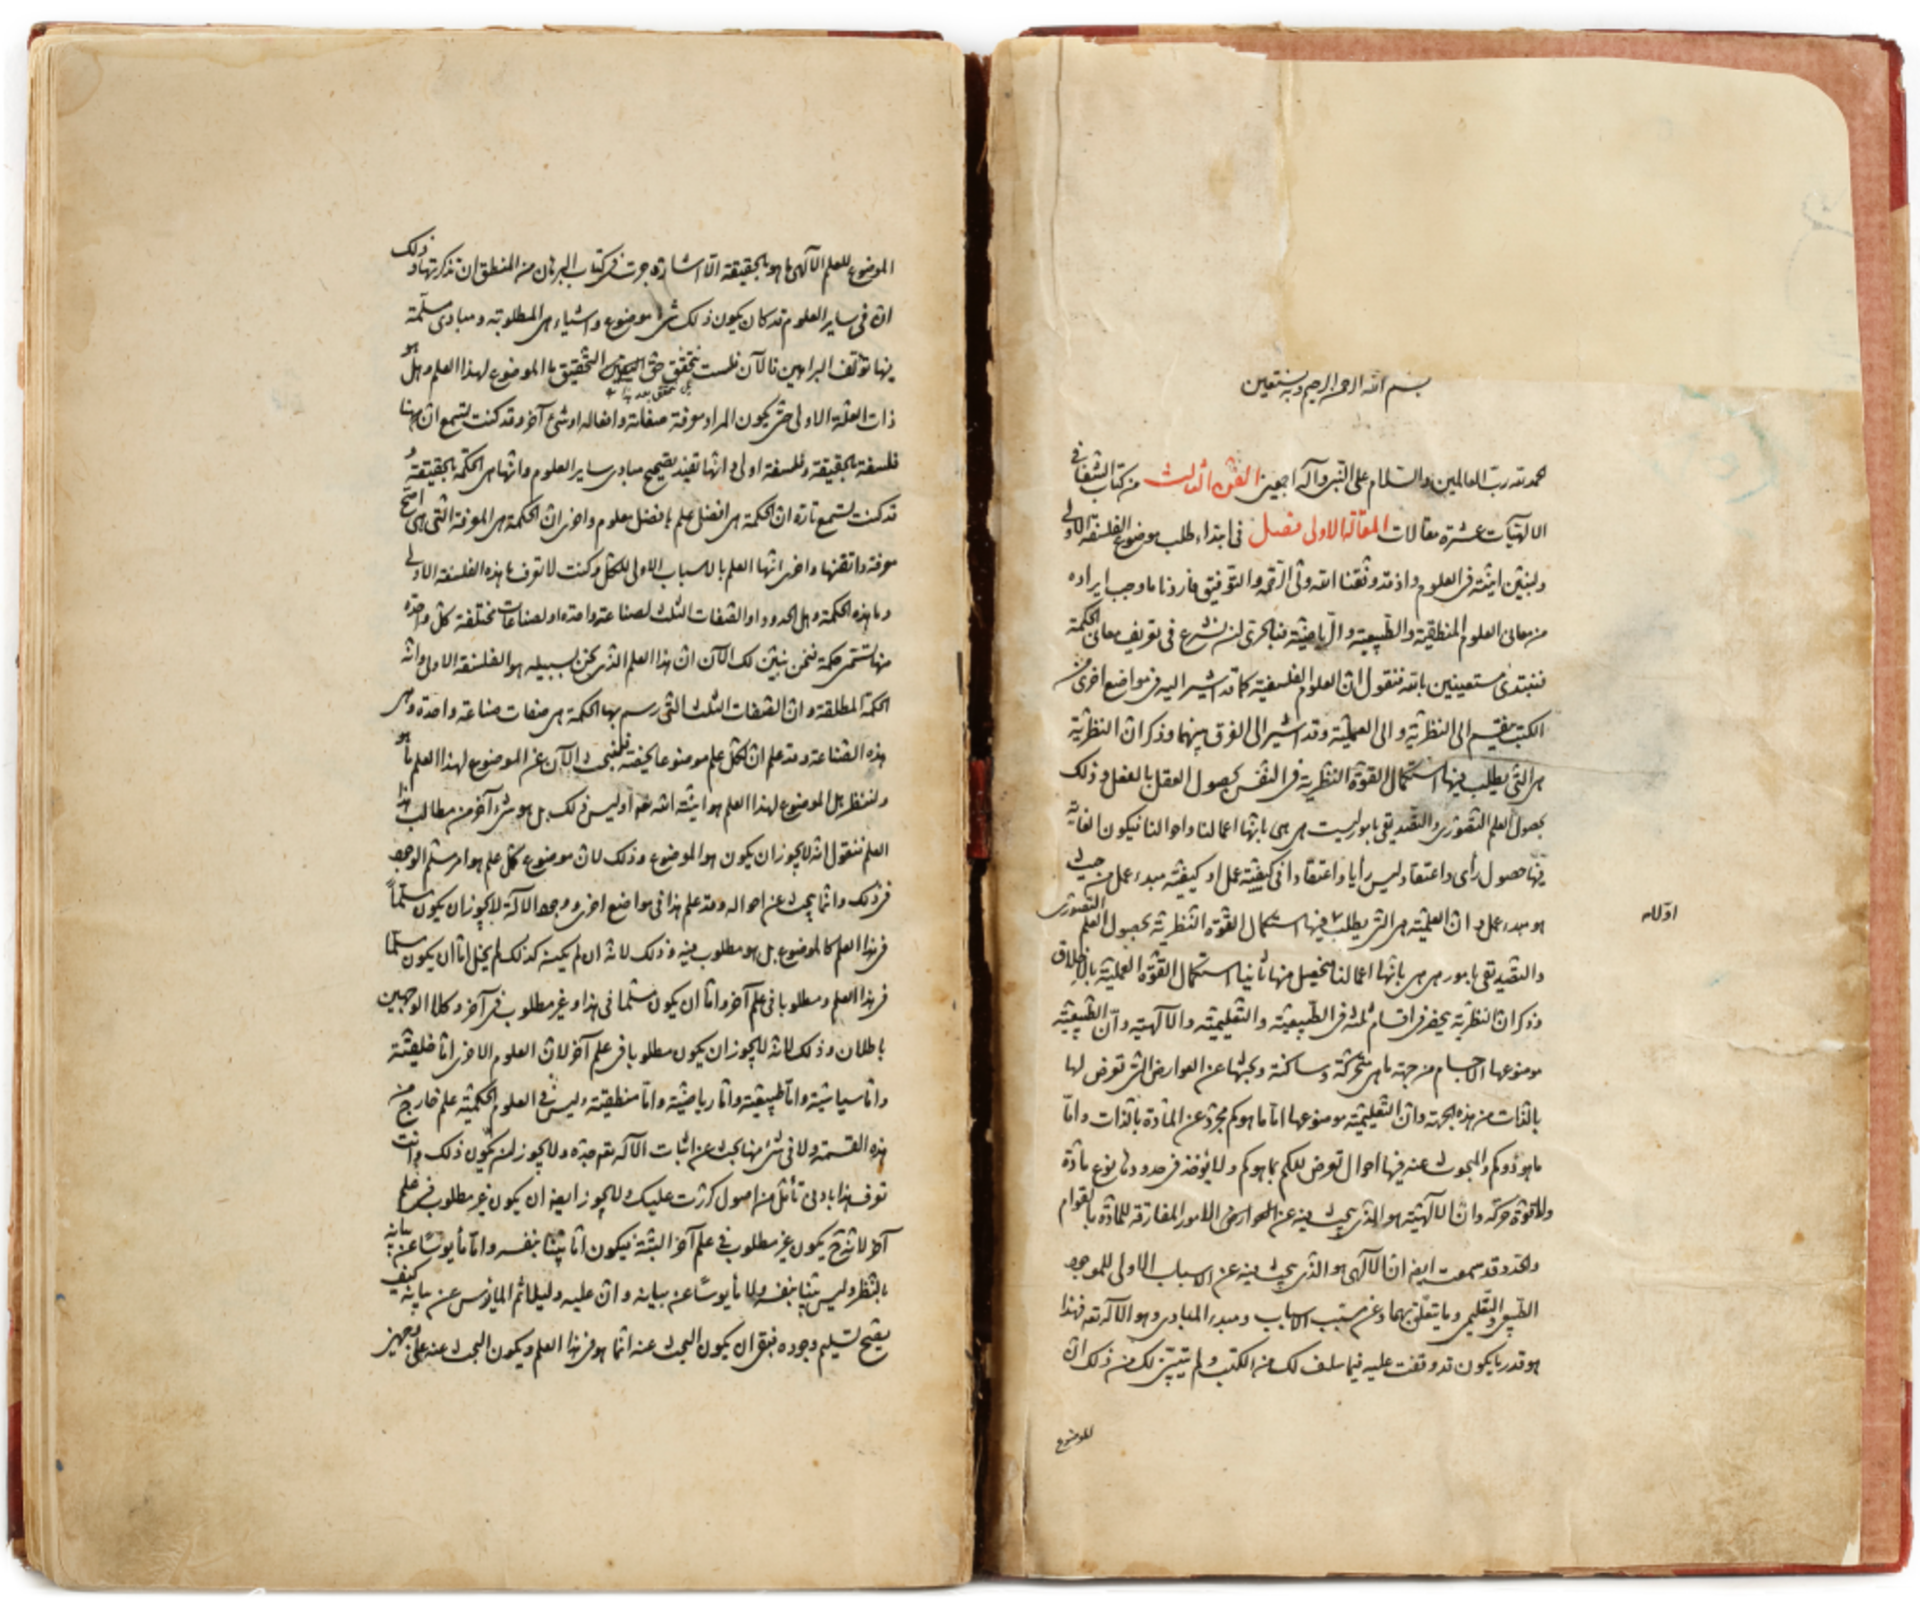 بسم الله الرحمن الرحيم وبه نستعين
الحمد لله رب العالمين والسلام على النبي وآله اجمعين الفن الثالث من كتاب الشفا في
الالهيات عشرة مقالات المقالة الاولى فصل في ابتداء طلب موضوع الفلسفة الاولى
ولتبين انيته في العلوم واذ قد وفقنا الله ولي الرحمة والتوفيق فاردنا ما وجب ايراده
من معاني العلوم المنطقية والطبيعية والرياضية فبالحرى ان نشرع في تعريف معاني الحكمة
فنبتدى مستعينين بالله فنقول ان العلوم الفلسفية كما قد اشير اليه في مواضع اخرى من
الكتب ينقسم الى النظرية والى العملية وقد اشير الى الفرق بينهما وذكر ان النظرية
هى التى يطلب فيها استكمال القوة النظرية في النفس بحصول العقل بالفعل وذلك
بحصول العلم التصورى والتصديقى بامور ليست هى هى بانها اعمالنا واحوالنا فيكون الغاية
فيها حصول رأى واعتقاد ليس رأيا واعتقادا في كيفية عمل او كيفية مبدء عمل من حيث
هو مبدء عمل و ان العملية هى التى يطلب فيها استكمال القوة النظرية بحصول العلم التصورى
اولا
والتصديقى بامور هى هى بانها اعمالنا ليحصل منها ثانيا استكمال القوة العملية بالاخلاق
وذكر ان النظرية ينحصر في اقسام ثلثة في الطبيعية والتعليمية والآلهية وان الطبيعية
موضوعها الاجسام من جهة ما هى متحركة وساكنة وبحثها عن العوارض التى تعرض لها
بالذات من هذه الجهة وان التعليمية موضوعها اما ما هو كم مجرد عن المادة بالذات واما
ما هو ذو كم والمبحوث عنه فيها احوال تعرض للكم بما هو كم ولا يؤخذ في حدودها نوع مادة
ولا قوة حركة وان الآلهية هو الذى يبحث فيه عن الامور المفارقة للمادة بالقوام
والحد وقد سمعت ايضا ان الآلهى هو الذى يبحث فيه عن الاسباب الاولى للموجود
الطبيعى والتعليمى وما يتعلق بهما وعن مسبب الاسباب ومبدء المبادى وهو الآله تعه فهذا
هو قدر ما يكون قد وقفت عليه فيما سلف لك من الكتب ولم يتبين لك من ذلك ان
الموضوع
الموضوع للعلم الآلهى ما هو بالحقيقة الا اشارة جرت في كتاب البرهان من المنطق ان تذكرتها وذلك
ان في ساير العلوم قد كان يكون ذلك شئ موضوع واشياء هى المطلوبة ومبادى مسلمة
منها تؤلف البراهين فالآن فلست تحقق حق التحقيق ما الموضوع لهذا العلم وهل هو
ذات العلة الاولى حتى يكون المراد معرفة صفاته وافعاله او شئ آخر وقد كنت تسمع ان ههنا
فلسفة بالحقيقة وفلسفة اولى وانها تفيد تصحيح مبادى ساير العلوم وانها هى الحكمة بالحقيقة و
قد كنت تسمع تارة ان الحكمة هى افضل علم بافضل معلوم واخرى ان الحكمة هى المعرفة التى هى اصح
معرفة واتقنها واخرى انها العلم بالاسباب الاولى للكل وكنت لا تعرف ما هذه الفلسفة الاولى
وما هذه الحكمة وهل الحدود او الصفات الثلث لصناعة واحدة او لصناعات مختلفة كل واحدة
منها تسمى حكمة فنحن نبين لك الآن ان هذا العلم الذى نحن بسبيله هو الفلسفة الاولى وانه
الحكمة المطلقة وان الصفات الثلث التى رسم بها الحكمة هى صفات صناعة واحدة وهى
هذه الصناعة وقد علم ان لكل علم موضوعا يخصه فلنبحث الآن عن الموضوع لهذا العلم ما هو
ولننظر هل الموضوع لهذا العلم هو انية الله تعه او ليس ذلك بل هو شئ آخر من مطالب هذا
العلم فنقول انه لا يجوز ان يكون هو الموضوع وذلك لان موضوع كل علم هو امر مسلم الوجود
في ذلك وانما يبحث عن احواله وقد علم هذا في مواضع اخرى ووجود الآله لا يجوز ان يكون مسلما
في هذا العلم كالموضوع بل هو مطلوب فيه وذلك لانه ان لم يكن كذلك لم يخل اما ان يكون مسلما
في هذا العلم ومطلوبا في علم آخر واما ان يكون مسلما في هذا وغير مطلوب في آخر وكلا الوجهين
باطلان وذلك لانه لا يجوز ان يكون مطلوبا في علم آخر لان العلوم الاخرى اما خلقية
واما سياسية واما طبيعية واما رياضية واما منطقية وليس في العلوم الحكمية علم خارج من
هذه القسمة ولا في شئ منها يبحث عن اثبات الآله تعه جده ولا يجوز ان يكون ذلك وانت
تعرف هذا بادنى تأمل من اصول كررت عليك ولا يجوز ايضا ان يكون غير مطلوب في علم
آخر لانه ح يكون غير مطلوب في علم آخر البتة فيكون اما بينا بنفسه واما مأيوسا عن بيانه
بالنظر وليس بينا بنفسه ولا مأيوسا عن بيانه وان عليه دليلا ثم المايوس عن بيانه كيف
يصح تسليم وجوده فبقى ان يكون البحث عنه انما هو في هذا العلم ويكون البحث عنه على وجهين